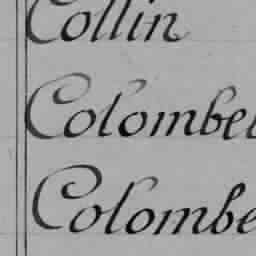 Collin
Colombel
Colombe